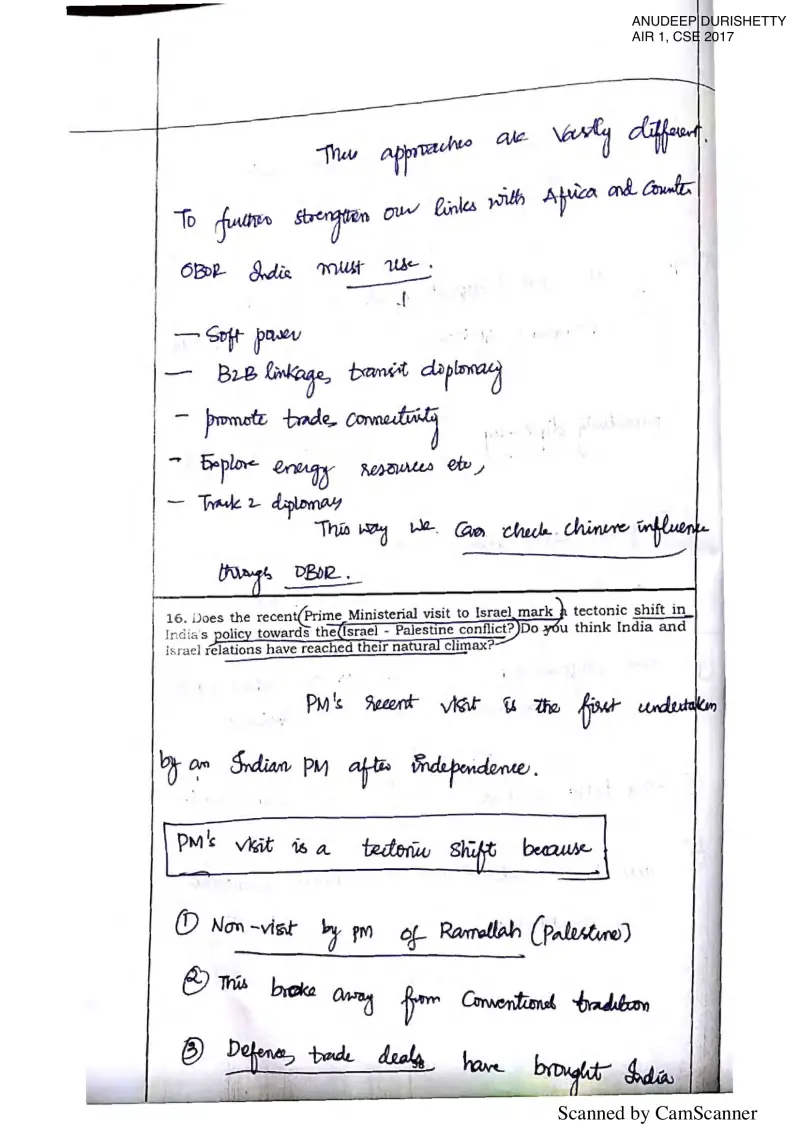 ANUDEEP DURISHETTY
AIR 1, CSE 2017
Thus approaches are vastly different.
To further strengthen our links with Africa and Counter
OBOR India must use :
— Soft power
— B2B linkage, transit diplomacy
– promote trade, connectivity
– Explore energy resources etc,
– Track 2 diplomacy
This way we can check chinese influence
through OBOR.
16. Does the recent Prime Ministerial visit to Israel mark a tectonic shift in
India's policy towards the Israel - Palestine conflict? Do you think India and
israel relations have reached their natural climax?
PM's recent visit is the first undertaken
by an Indian PM after independence.
PM's visit is a tectonic shift because
① Non-visit by PM of Ramallah (Palestine)
② This broke away from Conventional tradition
③ Defence, trade deals have brought India
58
Scanned by CamScanner